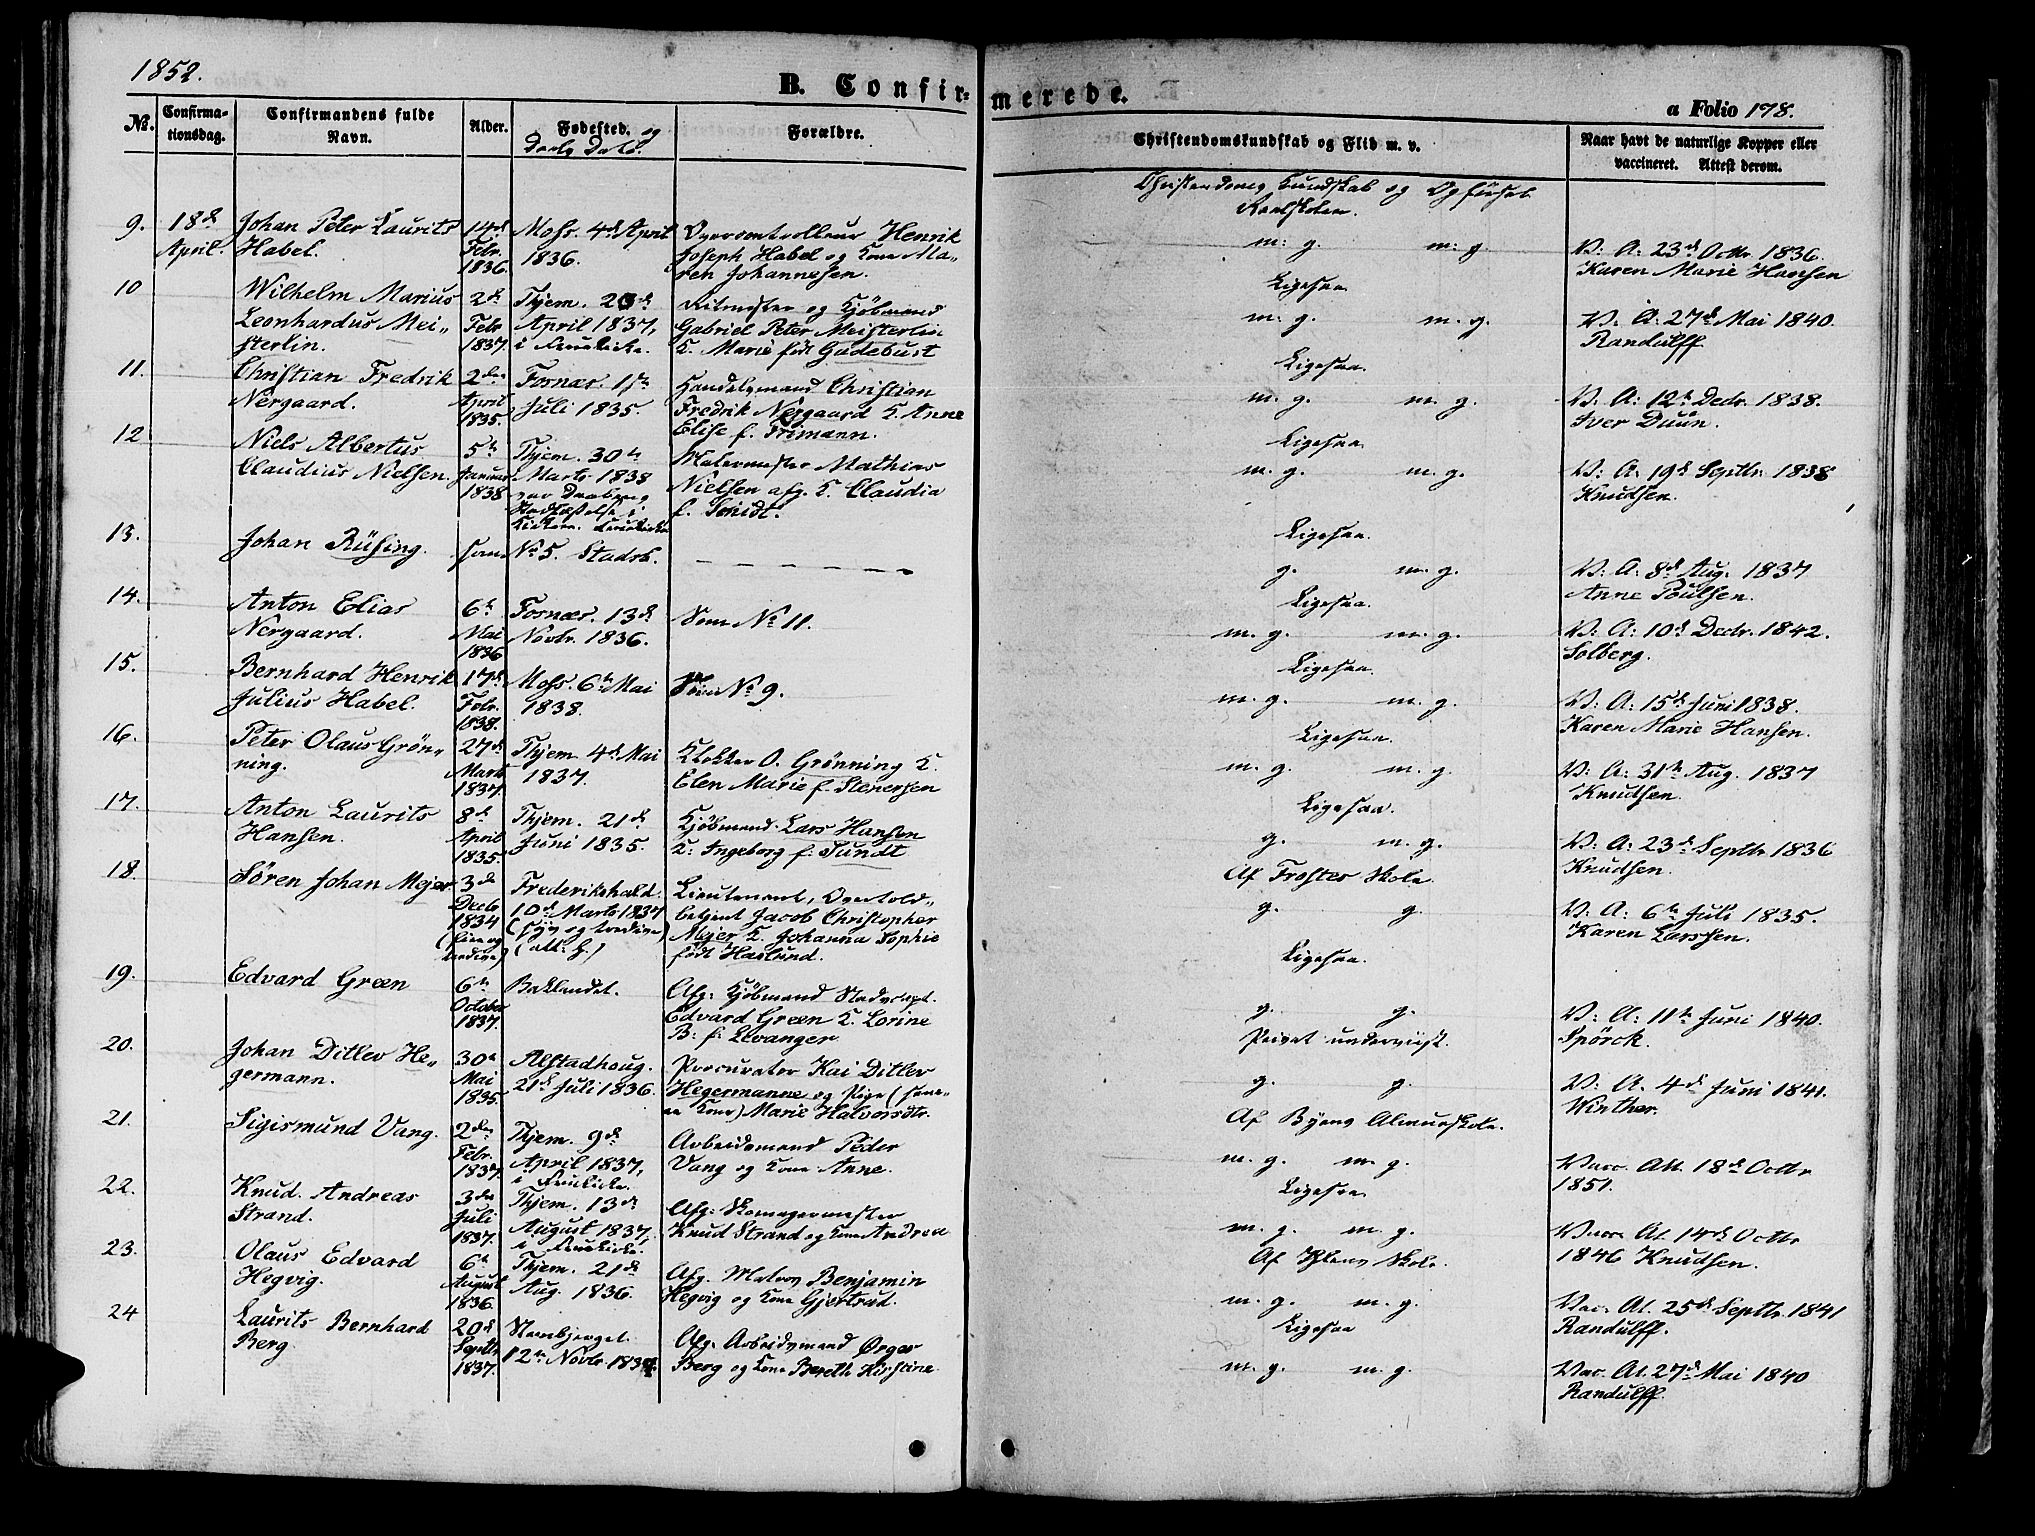 1852.
B. Confir-
merede.
a Folio 178.
No.
Confirma-
tionsdag.
Confirmandens fulde
Navn.
Alder.
Fødested. og
Daabs Dato.
Forældre.
Christendomskundskab og Flid m. v.
Naar havt de naturlige Kopper eller
vaccineret. Attest derom.
Christendoms Kundskab og Opførsel
Realskolen.
9.
18de
April.
Johan Peter Laurits
Habel.
14de
Febr.
1836.
Moss. 4de April
1836.
Overcontrolleur Henrik
Joseph Habel og Kone Ma-
ren Johannesen.
m: g. m: g.
V: A: 23de Octbr. 1836.
Karen Marie Hansen
10
Wilhelm Marius
Leonhardus Mei-
sterlin.
2de
Febr
1837.
Thjem. 23de
April 1837,
i Fruekirke.
Ritmester og Kjöbmand
Gabriel Peter Meisterlin
K. Marie født Gudebust
Ligesaa
m. g. m. g.
V. A: 27de Mai 1840.
Randulff
11.
Christian Fredrik
Nergaard.
2den
April
1835.
Fosnæs. 15de
Juli 1835.
Handelsmand Christian
Fredrik Nergaard K. Anne
Elise f. Frimann.
Ligesaa.
m. g. m. g.
V: A: 12te Decbr. 1838.
Iver Duun.
12
Niels Albertus
Claudius Nielsen.
5te
Januar
1838
Thjem. 30te
Marts 1838
Daabens
Stadfæstelse i
Kirken. Fruekirke
Malermester Mathias
Nielsen afg. K. Claudia
f. Smidt.
Ligesaa
m. g. m. g.
V: A: 19de Septbr. 1838
Knudsen.
13.
Johan Rüsing.
som No 5. Stadsb.
Ligesaa.
g. m. g.
V: A: 8de Aug. 1837
Anne Poulsen.
14.
Anton Elias
Nergaard.
6te
Mai
1836
Fosnæs. 13de
Novbr. 1836.
Som No 11.
Ligesaa.
m. g. m. g.
V: A: 10de Decbr. 1842.
Solberg.
15.
Bernhard Henrik
Julius Habel.
17de
Febr.
1838.
Moss. 6te Mai
1838.
Som No 9.
Ligesaa
m. g. m. g.
V: A: 15de Juni 1838.
Karen Marie Hansen.
16.
Peter Olaus Grön-
ning.
27de
Marts
1837.
Thjem. 4de Mai
1837.
Klokker O. Grønning K.
Elen Marie f. Stenersen
Ligesaa.
m. g. m. g.
V: A: 31te Aug. 1837
Knudsen.
17.
Anton Laurits
Hansen.
8de
April
1835.
Thjem. 21de
Juni 1835.
Kjöbmand Lars Hansen
K: Ingeborg f. Sundt
Ligesaa.
g. m. g.
V: A: 23de Septbr 1836
Knudsen.
18.
Søren Johan Mejer
3de
Decb
1834
(fire og
tredive)
Frederikshald.
10de Marts 1837
(syv og tredive)
(att: h.)
Lieutenant, Overtold-
betjent Jacob Christopher
Mejer K. Johanna Sophie
født Haslund.
Af Frosters Skole.
g. g.
V: A: 6te Juli 1835.
Karen Larssen.
19.
Edvard Green
6te
October
1837.
Baklandet.
Afg: Kjöbmand
Edvard Green K. Lorine
B. f. Levanger
Ligesaa.
g. g.
V: A: 11te Juni 1840.
Spörck.
20.
Johan Ditlev He-
germann.
30te
Mai
1835.
Alstadhoug.
21de Juli 1836.
Procurator Kai Ditlev
Hegermanne og Pige (
Kone) Marie Halvorsdtr.
Privat underviist.
g. g.
V: A. 4de Juni 1841.
Winther.
21.
Sigismund Vang.
2den
Febr.
1837.
Thjem. 9de
April 1837,
i Fruekirke.
Arbeidsmand Peder
Vang og Kone Anne.
Af Byens Almueskole.
m. g. m. g.
Vacc. Att. 18de Octbr
1851.
22.
Knud Andreas
Strand.
3die
Juli
1837.
Thjem. 13de
August 1837,
i Fruekirke.
Afg: Skomagermester
Knud Strand og Kone Andrea
Ligesaa
m. g. m. g.
Vacc. At. 14de Octbr
1846 Knudsen.
23.
Olaus Edvard
Hegvig.
6te
August
1836.
Thjem. 21de
Aug. 1836.
Afg. Matros Benjamin
Hegvig og Kone Gjertrud.
Af Ihlens Skole.
m. g. m. g.
Vac. At. 25de Septbr. 1841
Randulff.
24
Laurits Bernhard
Berg.
20de
Septbr
1837.
Steenbjerget.
12te Novbr. 1837.
Afg. Arbeidsmand Örges
Berg og Kone Bereth Kirstine
Ligesaa
m. g. m. g.
Vac. At. 27de Mai 1840
Randulff.